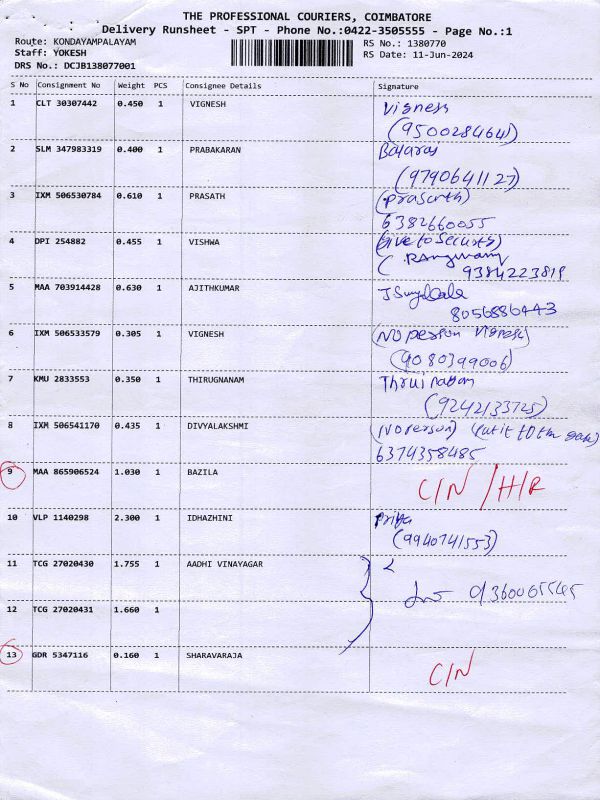 THE PROFESSIONAL COURIERS, COIMBATORE
Delivery Runsheet - SPT - Phone No.:0422-3505555 - Page No.:1
Route: KONDAYAMPALAYAM RS No.: 1380770
Staff: YOKESH RS Date: 11-Jun-2024
DRS No.: DCJB138077001
S No Consignment No Weight PCS Consignee Details Signature
1 CLT 30307442 0.450 1 VIGNESH Vigness
(9500284641)
2 SLM 347983319 0.400 1 PRABAKARAN Balaraj
(9790641127)
3 IXM 506530784 0.610 1 PRASATH (prasanth)
6382660055
4 DPI 254882 0.455 1 VISHWA (Give to Security)
( Rangasamy
9384223819
5 MAA 703914428 0.630 1 AJITHKUMAR
8056886443
6 IXM 506533579 0.305 1 VIGNESH (No person Vignesh)
(9080399006)
7 KMU 2833553 0.350 1 THIRUGNANAM
(9242133725)
8 IXM 506541170 0.435 1 DIVYALAKSHMI (No person) (put it to the gate)
6374358485
9 MAA 865906524 1.030 1 BAZILA C/N / H/R
10 VLP 1140298 2.300 1 IDHAZHINI Priya
(9940741553)
11 TCG 27020430 1.755 1 AADHI VINAYAGAR
12 TCG 27020431 1.660 1
13 GDR 5347116 0.160 1 SHARAVARAJA C/N